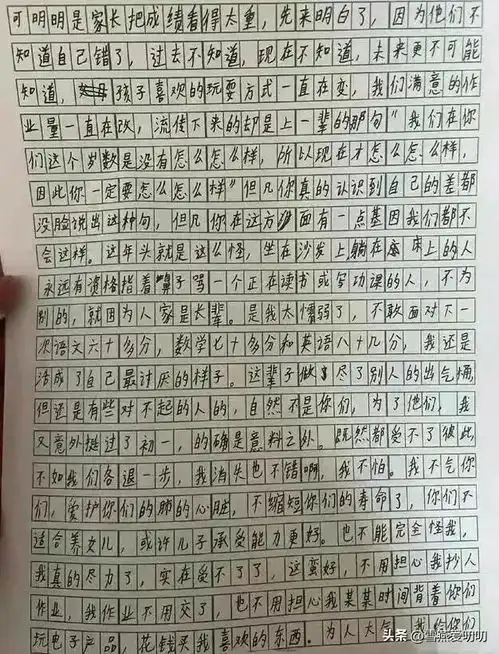 可明明是家长把成绩看得太重，先来明白了，因为他们不
知道自己错了，过去不知道，现在不知道，未来更不可能
知道，孩子喜欢的玩耍方式一直在变，我们满意的作
业量一直在改，流传下来的却是上一辈的那句"我们在你
们这个岁数是没有怎么怎么样，所以现在才怎么怎么样，
因此你一定要怎么怎么样"但凡你真的认识到自己的差都
没脸说出这种句，但凡你在这方面有一点基因我们都不
会这样。这年头就是这么怪，坐在沙发上躺在床上的人
永远有资格指着鼻子骂一个正在读书或写功课的人，不为
别的，就因为人家是长辈。是我太懦弱了，不敢面对下一
次语文六十多分，数学七十多分和英语八十几分，我还是
活成了自己最讨厌的样子。这辈子做尽了别人的出气桶，
但还是有些对不起的人的，自然不是你们，为了他们，我
又意外挺过了初一，的确是意料之外。既然都受不了彼此，
不如我们各退一步，我消失也不错啊，我不怕。我不气你
们，爱护你们的肺的心脏，不缩短你们的寿命了，你们不
适合养女儿，或许儿子承受能力更好。也不能完全怪我，
我真的尽力了，实在受不了了，这蛮好，不用担心我抄人
作业，我作业不用交了，也不用担心我某某时间背着你们
玩电子产品，花钱买我喜欢的东西。为人大气，我给你们
头条@雪莲爱明明